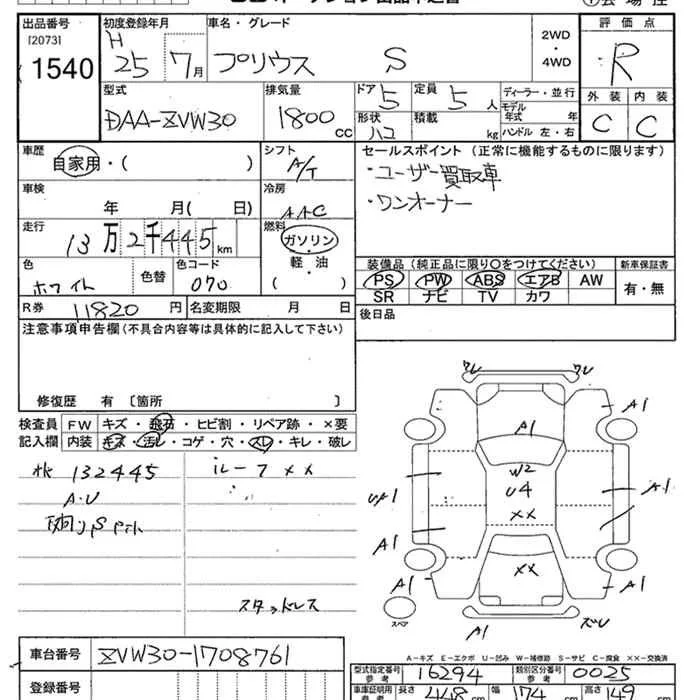 出品番号
[2073]
1540
初度登録年月
H
25 7月
車名・グレード
プリウス S
2WD
・
4WD
評価点
R
外装 内装
C C
型式
DAA-ZVW30
排気量
1800 CC
ドア 5
定員 5人
形状 ハコ
積載 kg
ディーラー・並行
モデル年式 年
ハンドル 左・右
車歴
自家用・( )
シフト
A/T
車検
年 月( 日)
冷房
AAC
走行
13万2千445km
燃料
ガソリン
軽・油
( )
色
ホワイト
色替
色コード
070
R券 11820円
名変期限 月 日
セールスポイント (正常に機能するものに限ります)
・ユーザー買取車
・ワンオーナー
装備品 (純正品に限り○をつけてください)
新車保証書
PS PW ABS エアB AW
SR ナビ TV カワ
有・無
後日品
注意事項申告欄(不具合内容等は具体的に記入して下さい)
修復歴 有 〔箇所 〕
検査員
記入欄
FW キズ・飛石・ヒビ割・リペア跡・×要
内装 キズ・汚レ・コゲ・穴・スレ・キレ・破レ
132445
A.U
ルーフ ××
スタッドレス
ワレ ワレ
A1
A1
W2
U4
××
UA1
A1
A1
××
A1
A1
A1
スペア
A-キズ E-エクボ U-凹み W-補修跡 S-サビ C-腐食 ××-交換済
車台番号 ZVW30-1708761
登録番号
型式指定番号 参考 16294
類別区分番号 参考 0025
車庫証明用 参考
長さ 448 cm 幅 174 cm 高さ 149 cm